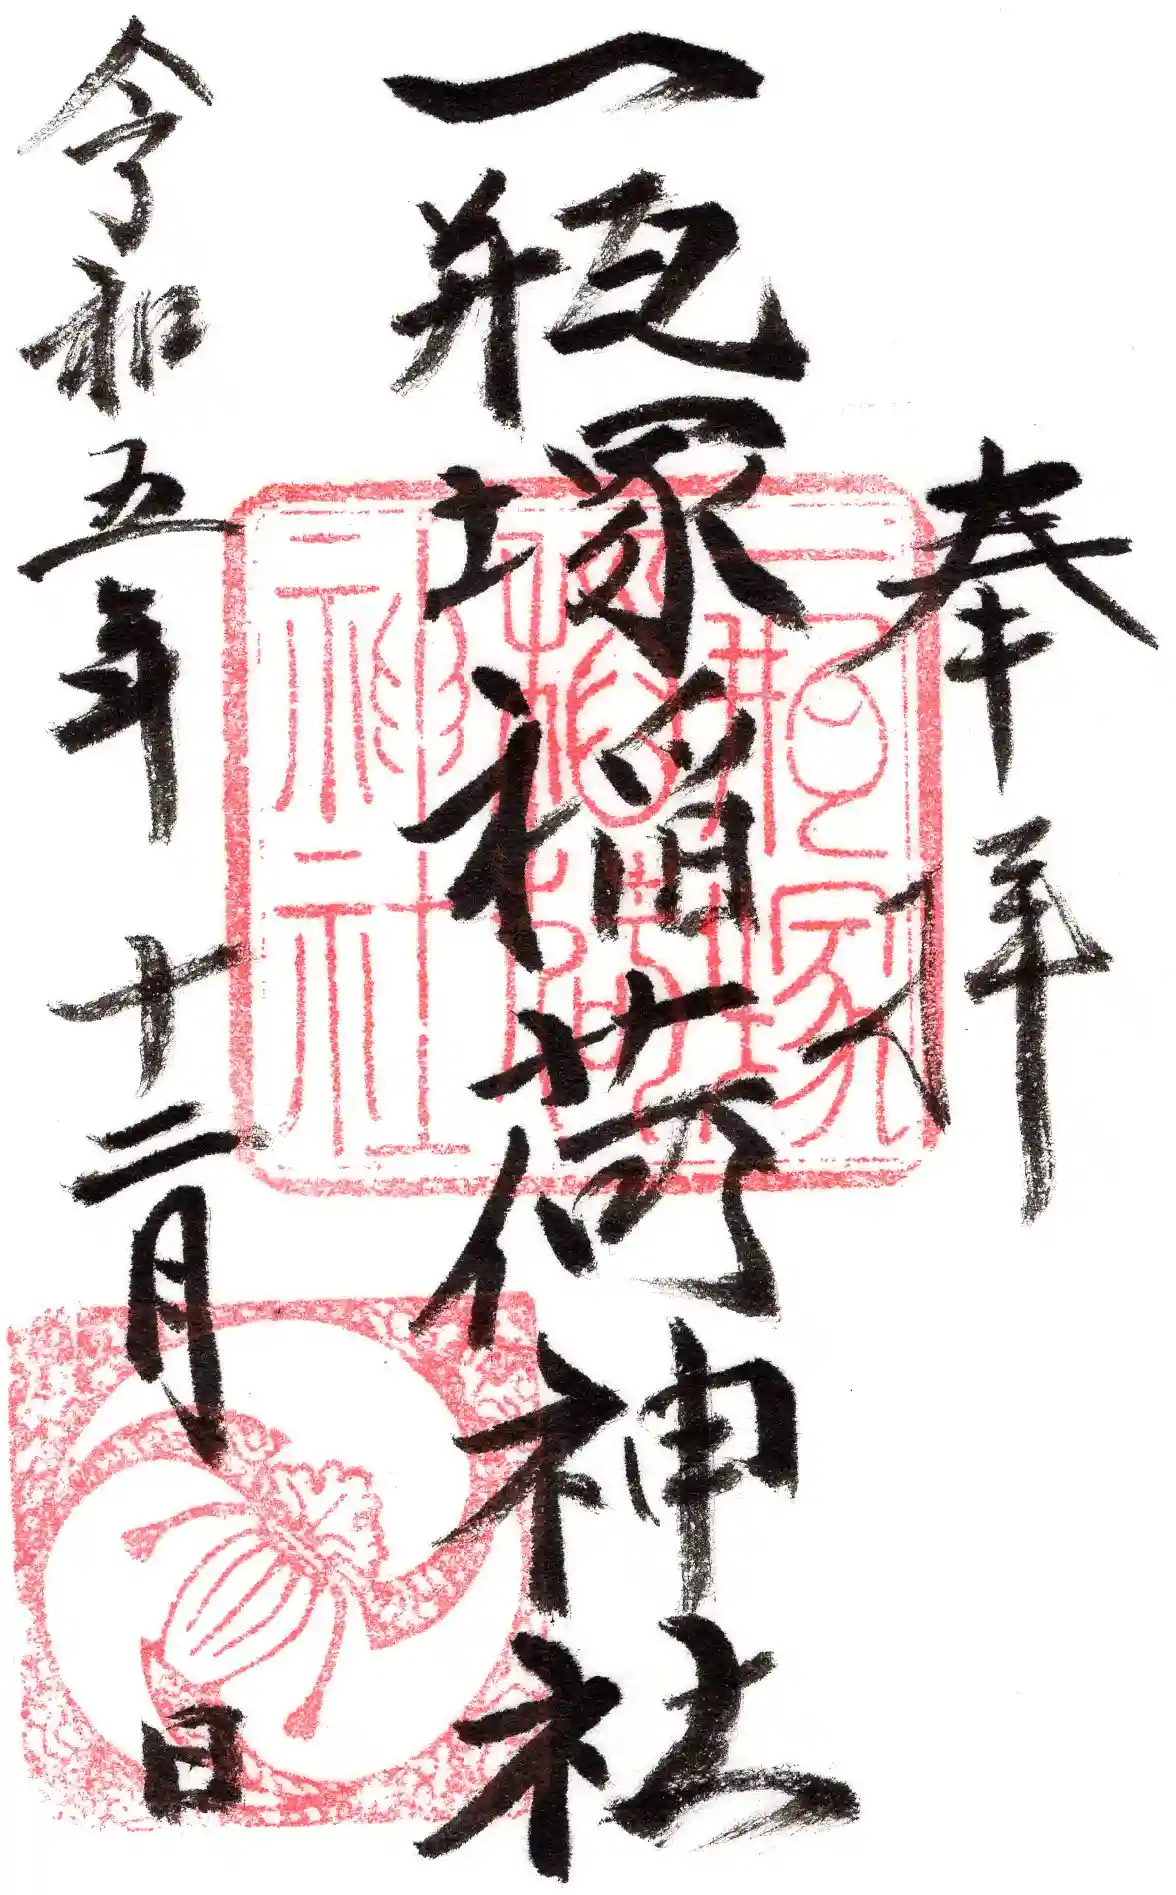 奉拝
一瓶塚稲荷神社
一瓶塚
稲荷
神社
令和五年十二月 日